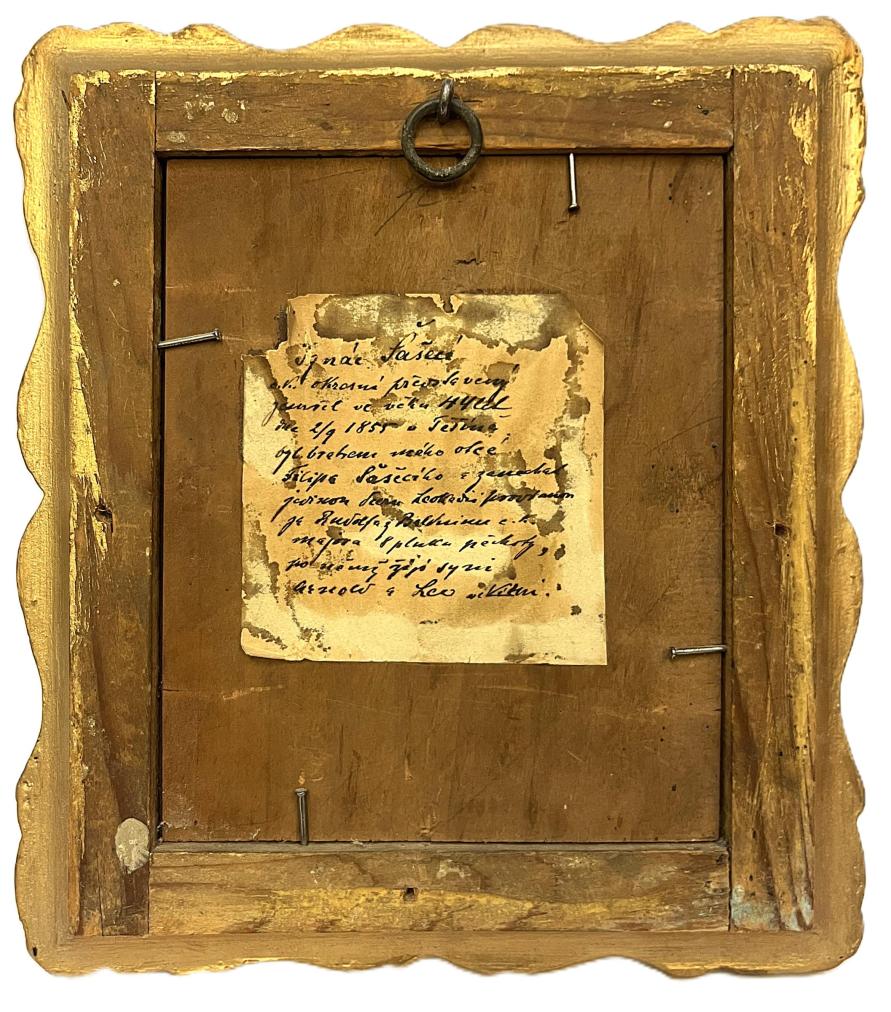 Ignác Šašecí
c.k. okresní představený
zemřel ve věku 44 let
dne 2/9 1855 v Těšíně,
byl bratrem mého otce,
Filipa Šašecího a zanechal
jedinou dceru Leokadii provdanou
za Rudolfa z c.k.
majora 8 pluku pěchoty,
po němž žijí syni
Arnold a Leo ve Vídni.